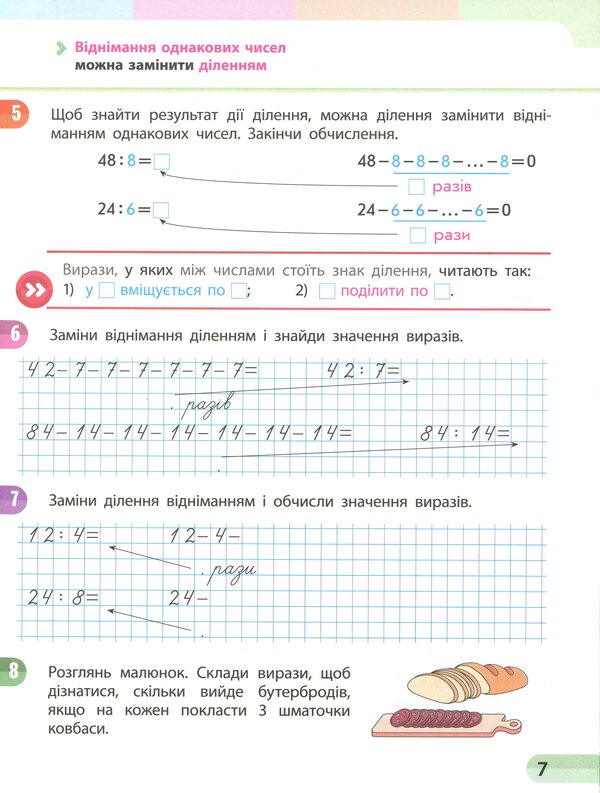 Віднімання однакових чисел
можна замінити діленням
5
Щоб знайти результат дії ділення, можна ділення замінити відні-
манням однакових чисел. Закінчи обчислення.
48 : 8 = □ 48 – 8 – 8 – 8 – ... – 8 = 0
□ разів
24 : 6 = □ 24 – 6 – 6 – ... – 6 = 0
□ рази
Вирази, у яких між числами стоїть знак ділення, читають так:
1) у □ вміщується по □; 2) □ поділити по □.
6
Заміни віднімання діленням і знайди значення виразів.
42 – 7 – 7 – 7 – 7 – 7 – 7 = 42 : 7 =
. разів
84 – 14 – 14 – 14 – 14 – 14 – 14 = 84 : 14 =
.
7
Заміни ділення відніманням і обчисли значення виразів.
12 : 4 = 12 – 4 –
. рази
24 : 8 = 24 –
.
8
Розглянь малюнок. Склади вирази, щоб
дізнатися, скільки вийде бутербродів,
якщо на кожен покласти 3 шматочки
ковбаси.
7